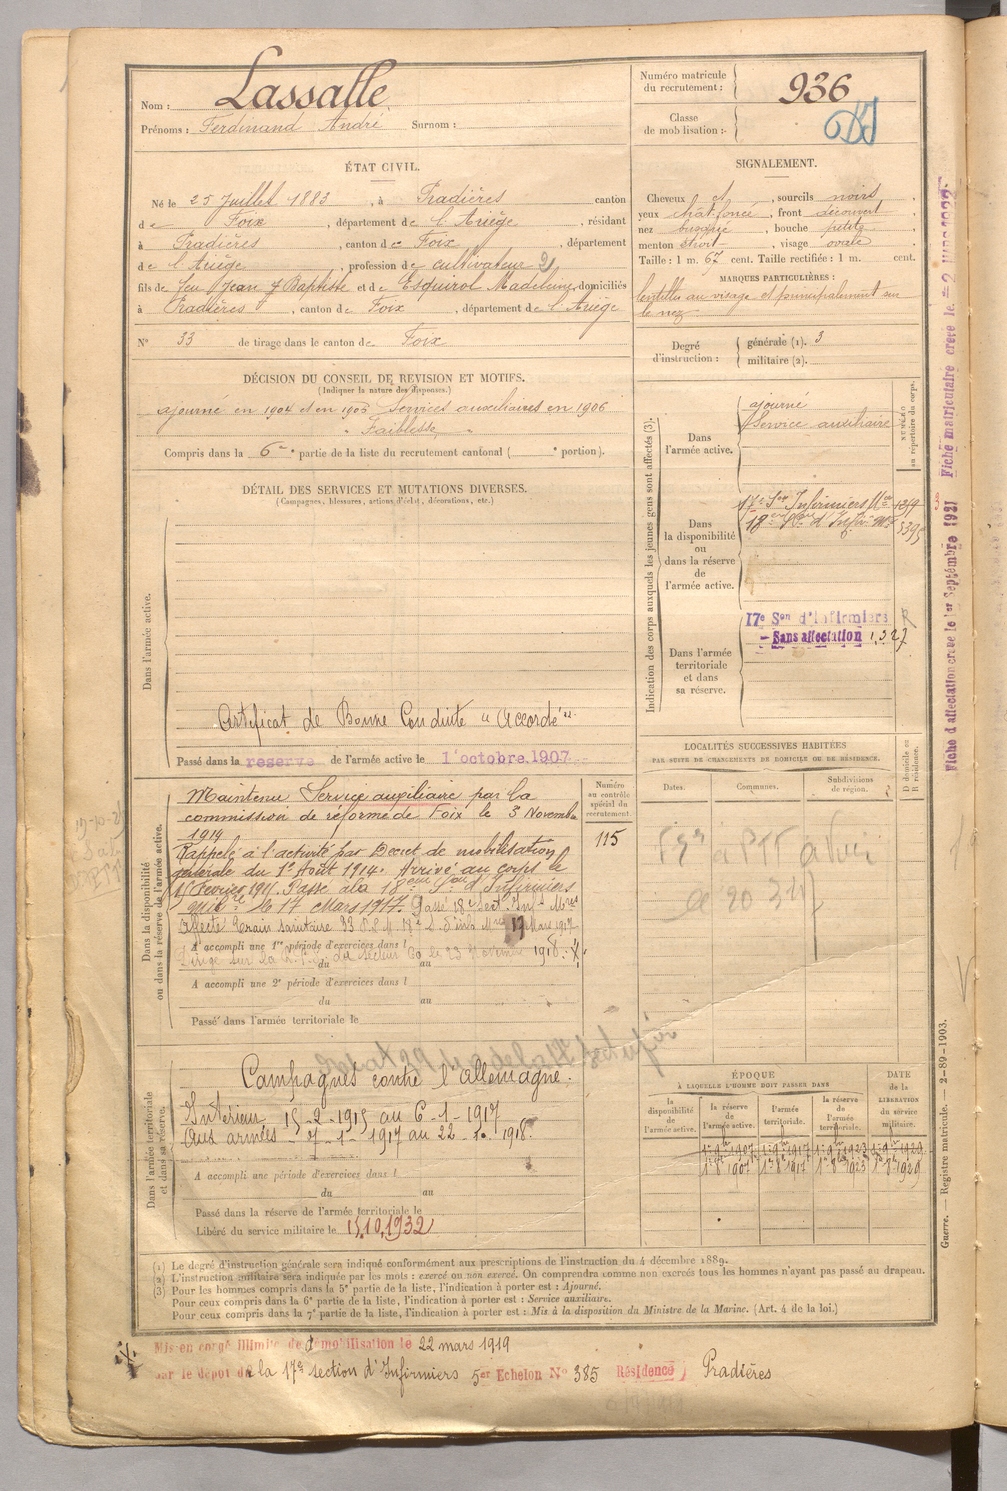 Nom : Lassalle
Prénoms : Ferdinand André Surnom :
Numéro matricule du recrutement : 936
Classe de mobilisation :
ÉTAT CIVIL.
Né le 25 Juillet 1883, à Pradières canton
de Foix, département de l'Ariège, résidant
à Pradières, canton de Foix, département
de l'Ariège, profession de cultivateur
fils de feu Jean Baptiste et de Esquirol Madeleine, domiciliés
à Pradières, canton de Foix, département de l'Ariège
N° 33 de tirage dans le canton de Foix
SIGNALEMENT.
Cheveux et, sourcils noirs,
yeux chât. foncé, front découvert,
nez busqué, bouche petite,
menton étroit, visage ovale
Taille : 1 m. 67 cent. Taille rectifiée : 1 m. cent.
MARQUES PARTICULIÈRES :
lentilles au visage et principalement sur
le nez
Degré d'instruction : générale (1). 3
militaire (2).
DÉCISION DU CONSEIL DE REVISION ET MOTIFS.
(Indiquer la nature des dispenses.)
ajourné en 1904 et en 1905 Services auxiliaires en 1906
" Faiblesse "
Compris dans la 6e partie de la liste du recrutement cantonal ( e portion).
DÉTAIL DES SERVICES ET MUTATIONS DIVERSES.
(Campagnes, blessures, actions d'éclat, décorations, etc.)
Dans l'armée active.
Certificat de Bonne Conduite "Accordé".
Passé dans la reserve de l'armée active le 1 octobre 1907
Indication des corps auxquels les jeunes gens sont affectés (3).
NUMÉRO au répertoire du corps.
Dans l'armée active.
ajourné
Service auxiliaire
Dans la disponibilité ou dans la réserve de l'armée active.
17e Son Infirmiers Mres 1399
18eme Son d'Infirm. Mres 5395
Dans l'armée territoriale et dans sa réserve.
17e Son d'Infirmiers
Sans affectation 1.3 27
LOCALITÉS SUCCESSIVES HABITÉES
PAR SUITE DE CHANGEMENTS DE DOMICILE OU DE RÉSIDENCE.
Dates. Communes. Subdivisions de région. D domicile ou R résidence.
Dans la disponibilité ou dans la réserve de l'armée active.
Numéro au contrôle spécial du recrutement.
115
Maintenu Service auxiliaire par la
commission de réforme de Foix le 3 Novembre
1914
Rappelé à l'activité par Décret de mobilisation
générale du 1er Août 1914. Arrivé au corps le
15 Février 1915. Passé à la 18eme Son d'Infirmiers
Milres le 17 Mars 1917. Passé 18e Sect. Inf. Mres
Affecté train sanitaire 17 Mars 1917
A accompli une 1re période d'exercices dans l
du au
A accompli une 2e période d'exercices dans l
du au
Passé dans l'armée territoriale le
Dans l'armée territoriale et dans sa réserve.
Campagnes contre l'Allemagne.
Intérieur 15-2-1915 au 6-1-1917
Aux armées 7-1-1917 au 22
A accompli une période d'exercices dans l
du au
Passé dans la réserve de l'armée territoriale le
Libéré du service militaire le 15.10.1932
ÉPOQUE
À LAQUELLE L'HOMME DOIT PASSER DANS
la disponibilité de l'armée active. la réserve de l'armée active. l'armée territoriale. la réserve de l'armée territoriale.
DATE de la LIBÉRATION du service militaire.
(1) Le degré d'instruction générale sera indiqué conformément aux prescriptions de l'instruction du 4 décembre 1889.
(2) L'instruction militaire sera indiquée par les mots : exercé ou non exercé. On comprendra comme non exercés tous les hommes n'ayant pas passé au drapeau.
(3) Pour les hommes compris dans la 5e partie de la liste, l'indication à porter est : Ajourné.
Pour ceux compris dans la 6e partie de la liste, l'indication à porter est : Service auxiliaire.
Pour ceux compris dans la 7e partie de la liste, l'indication à porter est : Mis à la disposition du Ministre de la Marine. (Art. 4 de la loi.)
Mis en congé illimité de démobilisation le 22 mars 1919
par le dépôt de la 17e section d'Infirmiers 5e Echelon N° 385 Résidence Pradières
Guerre. — Registre matricule. — 2-89-1903.
Fiche d'affectation créée le 1er Septembre 1921 Fiche matriculaire créée le